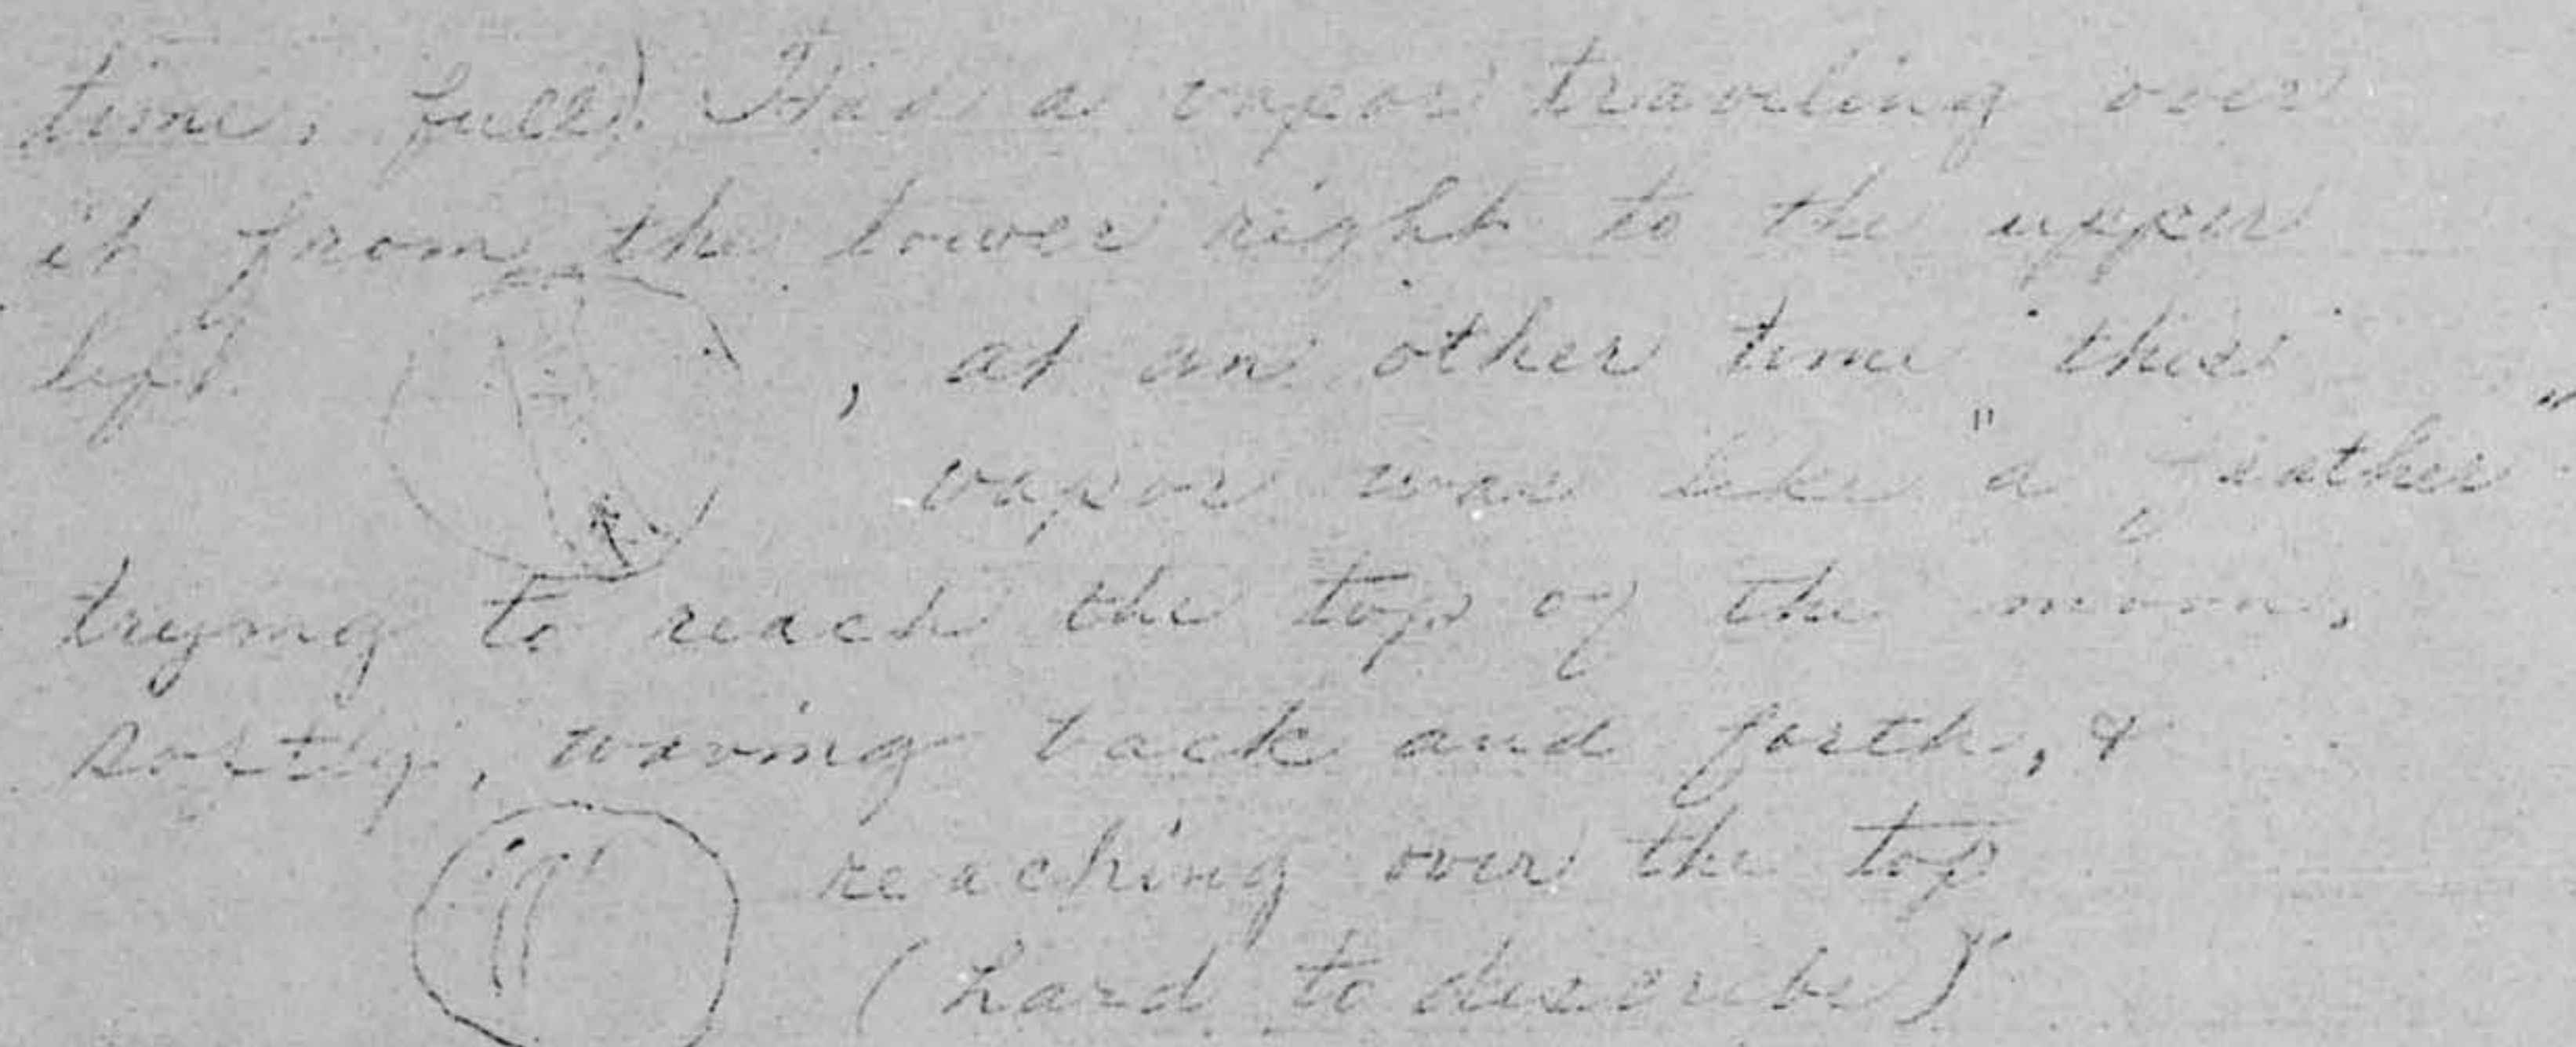 time, full). Had a vapor traveling over
it from the lower right to the upper
left , at an other time this
vapor was like "a feather"
trying to reach the top of the moon,
softly, waving back and forth, &
reaching over the top
(hard to describe)